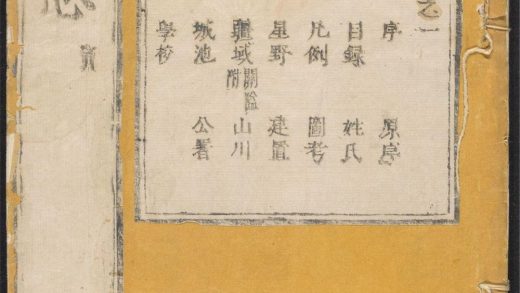 之一
序 原序
目録 姓氏
凡例 圖考
星野 建置
疆域 關隘附 山川
城池 公署
學校